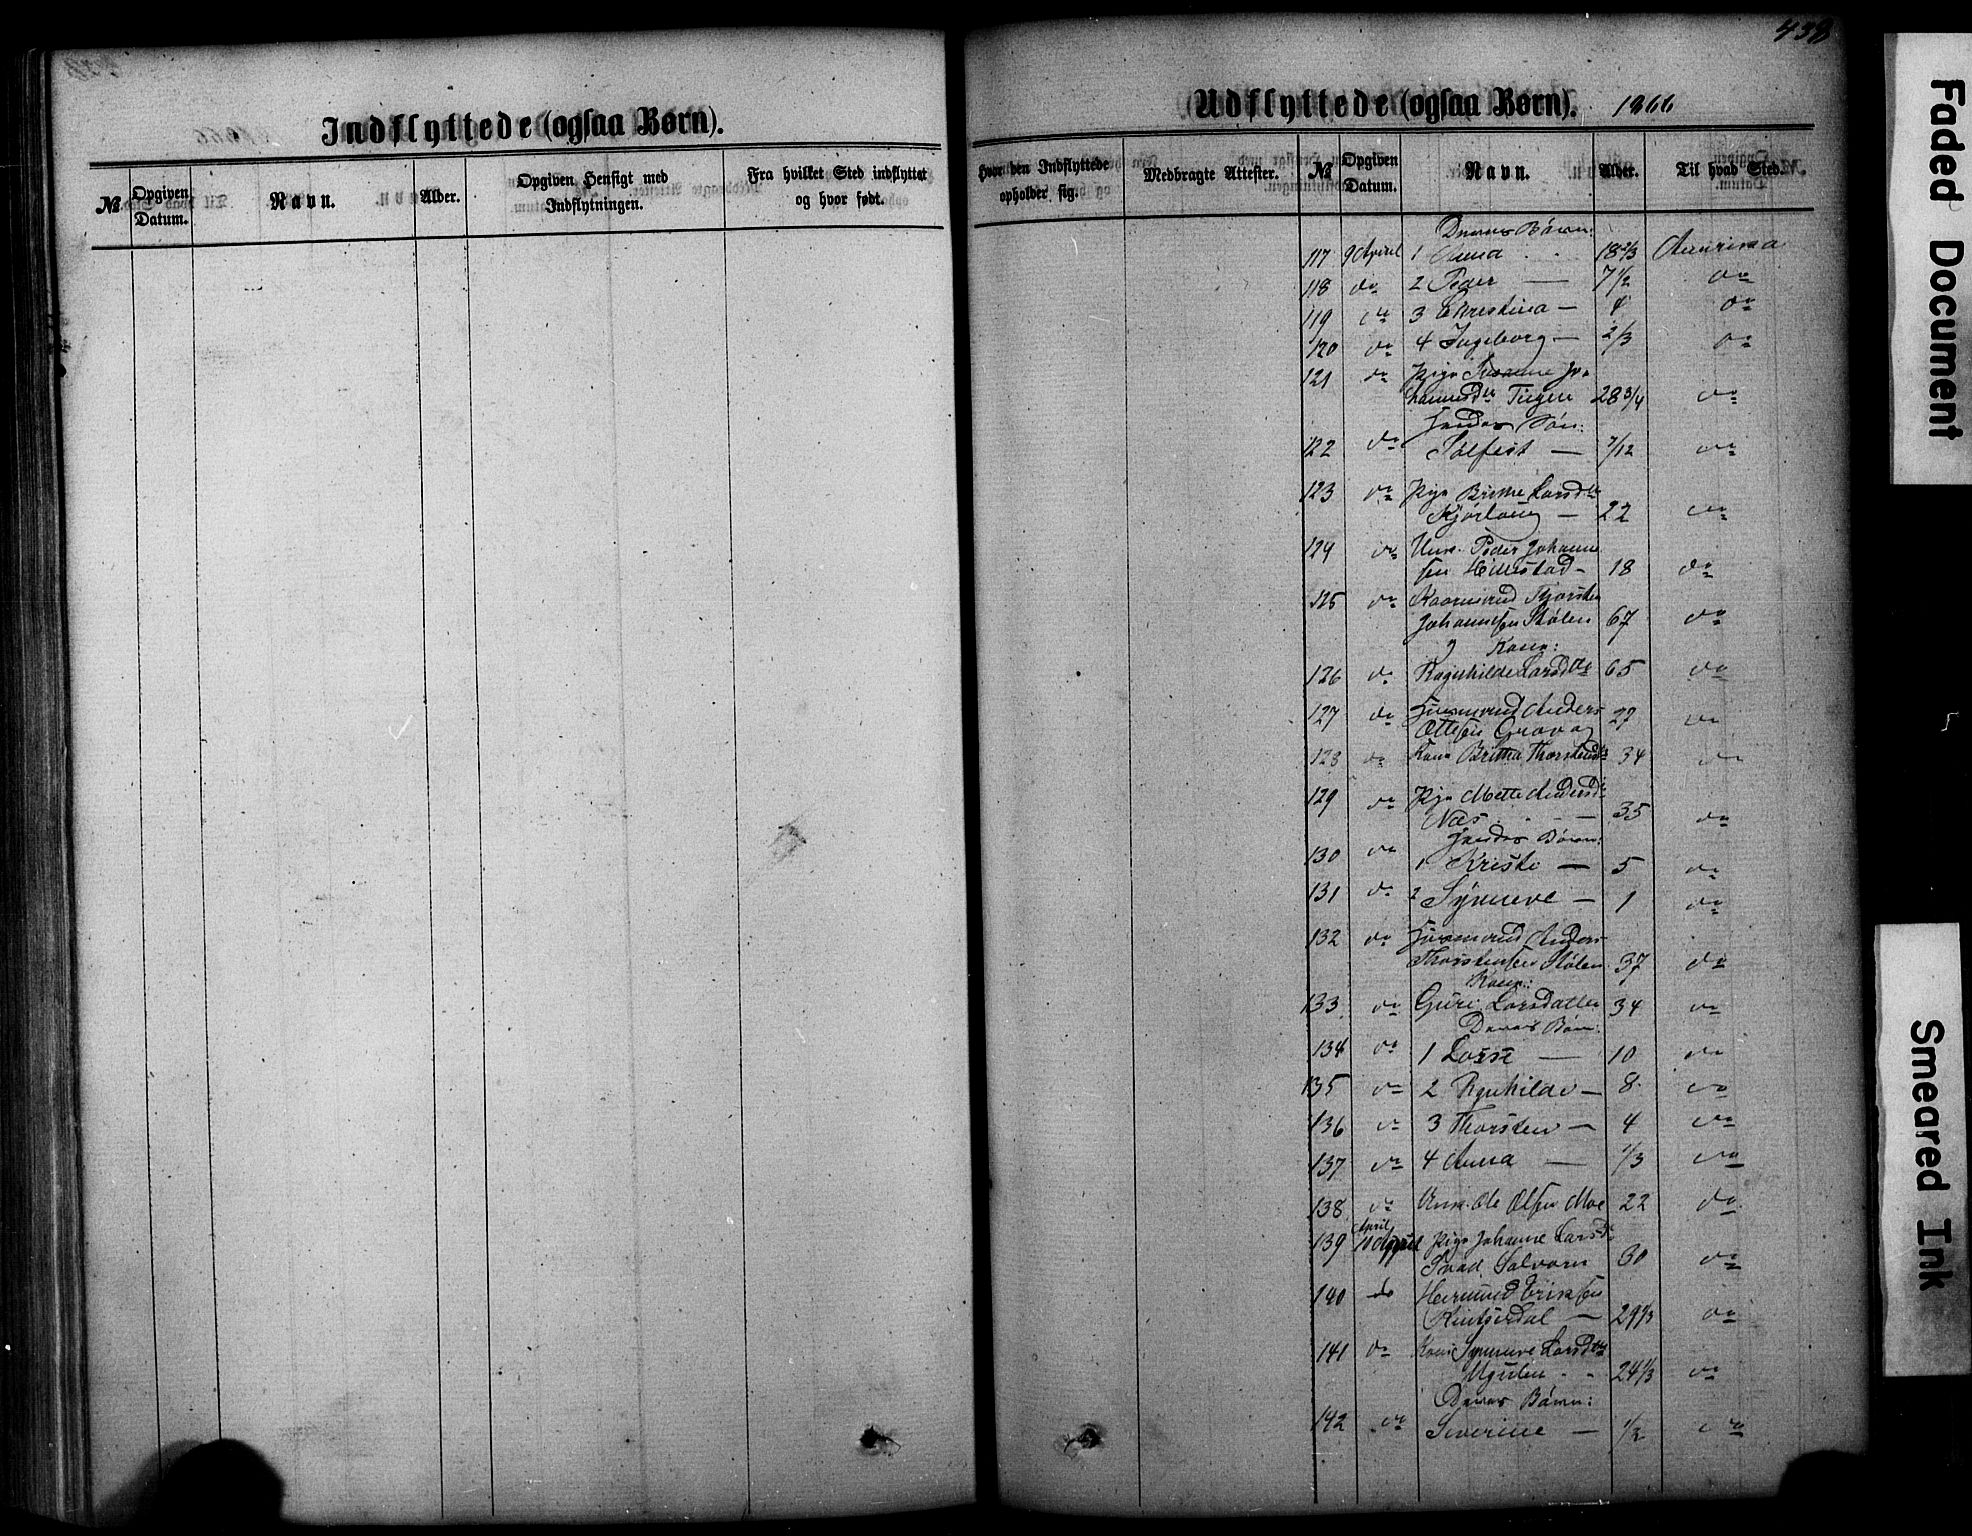 438
Indflyttede (ogsaa Børn).
№
Opgiven Datum.
Navn.
Alder.
Opgiven Hensigt med Indflytningen.
Fra hvilket Sted indflyttet og hvor født.
Udflyttede (ogsaa Børn). 1866
Hvor den Indflyttede opholder sig.
Medbragte Attester.
№
Opgiven Datum.
Navn.
Alder.
Til hvad Sted.
Deres Børn:
117 9 April 1 Anna 18 2/3 Amerika
118 do 2 Peder — 7 1/2 do
119 do 3 Christina — 4 do
120 do 4 Ingeborg — 2/3 do
121 do Pige Susanne Jo-
hannesdtr Turgen 28 3/4 do
Hendes Søn:
122 do Tolfest — 7/12 do
123 do Pige Brithe Larsdtr
Kjørlaug — 22 do
124 do Unk. Peder Johanne
sen Hillestad — 18 do
125 do Kaarmand Thorsten
Johannesen Stølen 67 do
Kone:
126 do Ragnhilde Larsdtr 65 do
127 do Huusmand Anders
Ottesen Grova 27 do
128 do Kone Brittha Thorstensdtr 34 do
129 do Pige Mette Andersdr
Næs — 35 do
Hendes Børn:
130 do 1 Kristi — 5 do
131 do 2 Synneve — 1 do
132 do Huusmand Anders
Thorstensen Stølen 37 do
Kone:
133 do Guri Larsdatter 34 do
Deres Børn:
134 do 1 Lasse — 10 do
135 do 2 Ragnhilde — 8 do
136 do 3 Thorsten — 4 do
137 do 4 Anna — 1/3 do
138 do Unk. Ole Olsen Moe 22 do
April
139 10 April Pige Johanne Larsdr
Solvorn 30 do
140 do Hermund Eriksen
Kintsedal — 29 1/3 do
141 do Kone Synneve Larsdtr
Ugulen 24 1/3 do
Deres Børn:
142 do Severine — 1/2 do
Faded Document
Smeared Ink